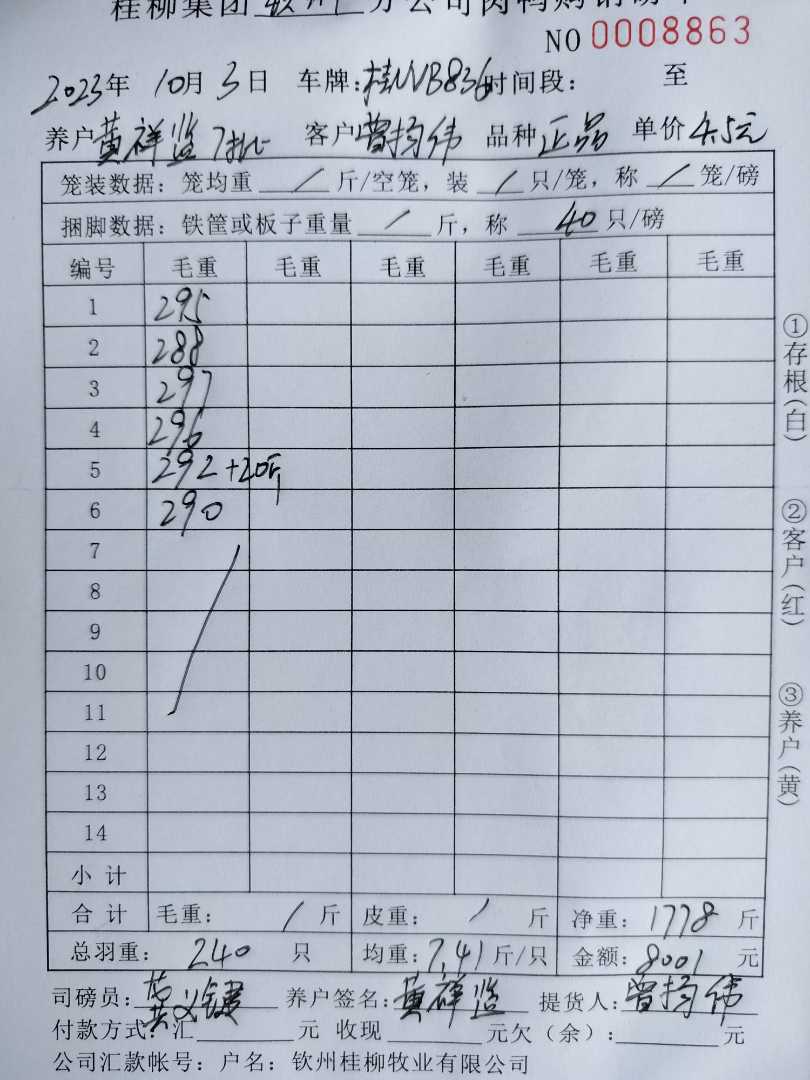 桂柳集团 钦州 分公司肉鸭购销磅单
NO 0008863
2023年 10月 3日 车牌: 桂NVB836 时间段: 至
养户 黄祥监 7批 客户 曾均伟 品种 正品 单价 4.5元
笼装数据: 笼均重 / 斤/空笼, 装 / 只/笼, 称 / 笼/磅
捆脚数据: 铁筐或板子重量 / 斤, 称 40 只/磅
编号 毛重 毛重 毛重 毛重 毛重 毛重
1 295
2 288
3 297
4 296
5 292+20斤
6 290
7
8
9
10
11
12
13
14
小计
合计 毛重: / 斤 皮重: / 斤 净重: 1778 斤
总羽重: 240 只 均重: 7.41 斤/只 金额: 8001 元
司磅员: 黄义 养户签名: 黄祥监 提货人: 曾均伟
付款方式: 汇 元 收现 元欠(余): 元
公司汇款帐号: 户名: 钦州桂柳牧业有限公司
①存根(白)
②客户(红)
③养户(黄)